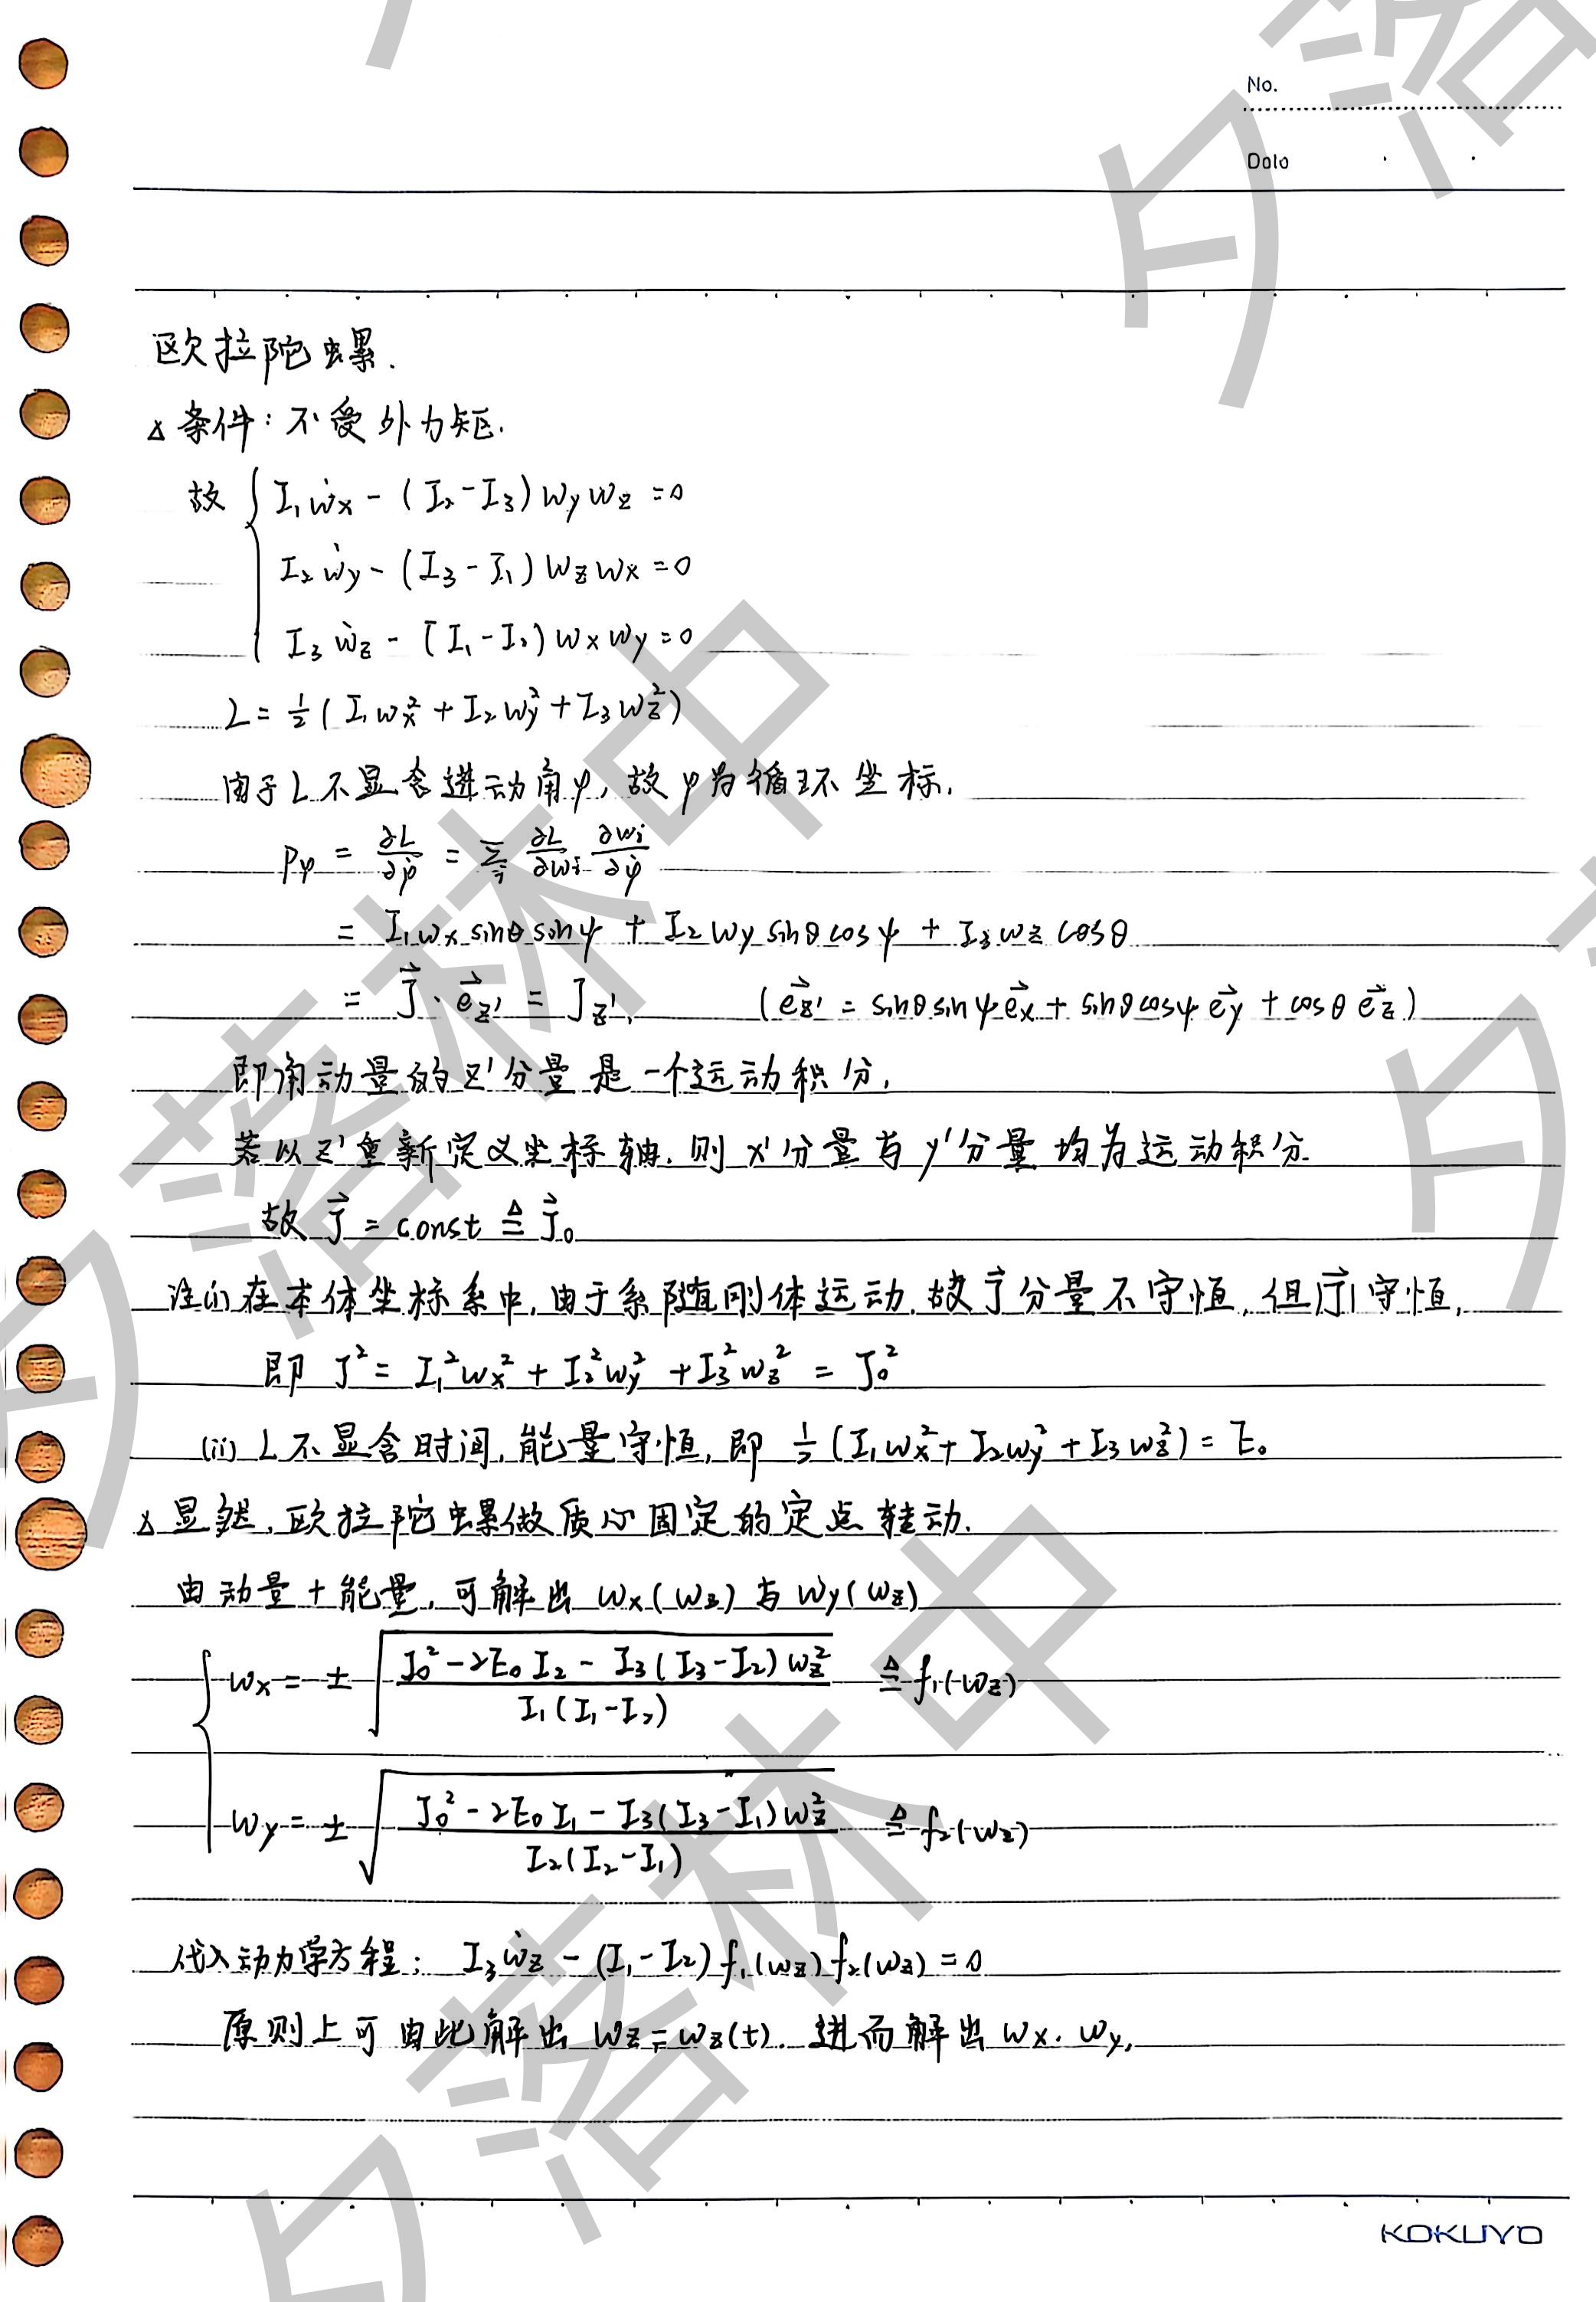 No.
Date
欧拉陀螺.
△条件:不受外力矩.
故 { I₁ω̇x - (I₂-I₃)ωyωz = 0
I₂ω̇y - (I₃-I₁)ωzωx = 0
I₃ω̇z - (I₁-I₂)ωxωy = 0
L = ½(I₁ωx² + I₂ωy² + I₃ωz²)
由于L不显含进动角φ,故φ为循环坐标.
pφ = ∂L/∂φ̇ = Σi ∂L/∂ωi ∂ωi/∂φ̇
= I₁ωx sinθ sinψ + I₂ωy sinθ cosψ + I₃ωz cosθ
= J⃗·e⃗z' = Jz'. (e⃗z' = sinθ sinψ e⃗x + sinθ cosψ e⃗y + cosθ e⃗z)
即角动量的z'分量是一个运动积分.
若以z'重新定义坐标轴.则x'分量与y'分量均为运动积分
故 J⃗ = const ≜ J⃗₀
注(i)在本体坐标系中,由于系随刚体运动.故J⃗分量不守恒,但|J⃗|守恒,
即 J² = I₁²ωx² + I₂²ωy² + I₃²ωz² = J₀²
(ii) L不显含时间,能量守恒,即 ½(I₁ωx² + I₂ωy² + I₃ωz²) = E₀
△显然,欧拉陀螺做质心固定的定点转动.
由动量+能量,可解出 ωx(ωz)与ωy(ωz)
{ ωx = ± √((J₀² - 2E₀I₂ - I₃(I₃-I₂)ωz²) / (I₁(I₁-I₂))) ≜ f₁(ωz)
ωy = ± √((J₀² - 2E₀I₁ - I₃(I₃-I₁)ωz²) / (I₂(I₂-I₁))) ≜ f₂(ωz)
代入动力学方程: I₃ω̇z - (I₁-I₂)f₁(ωz)f₂(ωz) = 0
原则上可由此解出 ωz = ωz(t). 进而解出 ωx. ωy.
KOKUYO
夕落林中
夕落林中